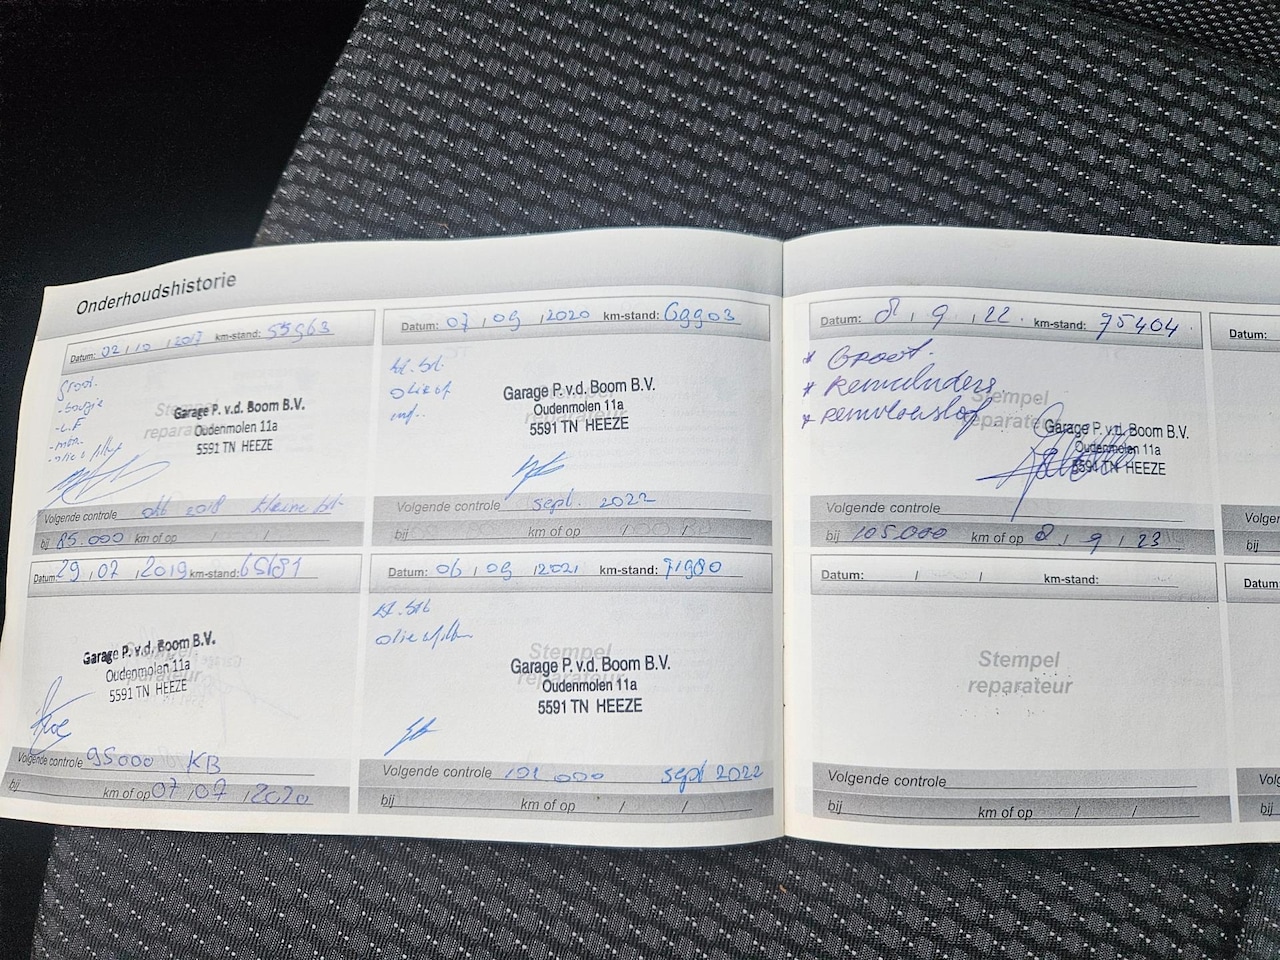 Onderhoudshistorie
Datum: 02 / 10 / 2017 km-stand: 55963
Groot.
- bougie
- L.F
- olie & filter
Stempel
reparateur
Garage P. v.d. Boom B.V.
Oudenmolen 11a
5591 TN HEEZE
Volgende controle okt 2018 kleine brt.
bij 85.000 km of op / /
Datum: 29 / 07 / 2019 km-stand: 65181
Stempel
reparateur
Garage P. v.d. Boom B.V.
Oudenmolen 11a
5591 TN HEEZE
Volgende controle 95000 KB
bij km of op 07 / 07 / 2020
Datum: 07 / 09 / 2020 km-stand: 69903
Stempel
reparateur
Garage P. v.d. Boom B.V.
Oudenmolen 11a
5591 TN HEEZE
Volgende controle sept. 2022
bij km of op / /
Datum: 06 / 09 / 2021 km-stand: 71980
olie & filter
Stempel
reparateur
Garage P. v.d. Boom B.V.
Oudenmolen 11a
5591 TN HEEZE
Volgende controle 101 000 sept 2022
bij km of op / /
Datum: 8 / 9 / 22. km-stand: 75404
* Groot.
* Remcilinders.
* remvloeistof
Stempel
reparateur
Garage P. v.d. Boom B.V.
Oudenmolen 11a
5591 TN HEEZE
Volgende controle
bij 105.000 km of op 8 / 9 / 23
Datum: / / km-stand:
Stempel
reparateur
Volgende controle
bij km of op / /
Datum:
Volger
bij
Datum:
Volg
bij